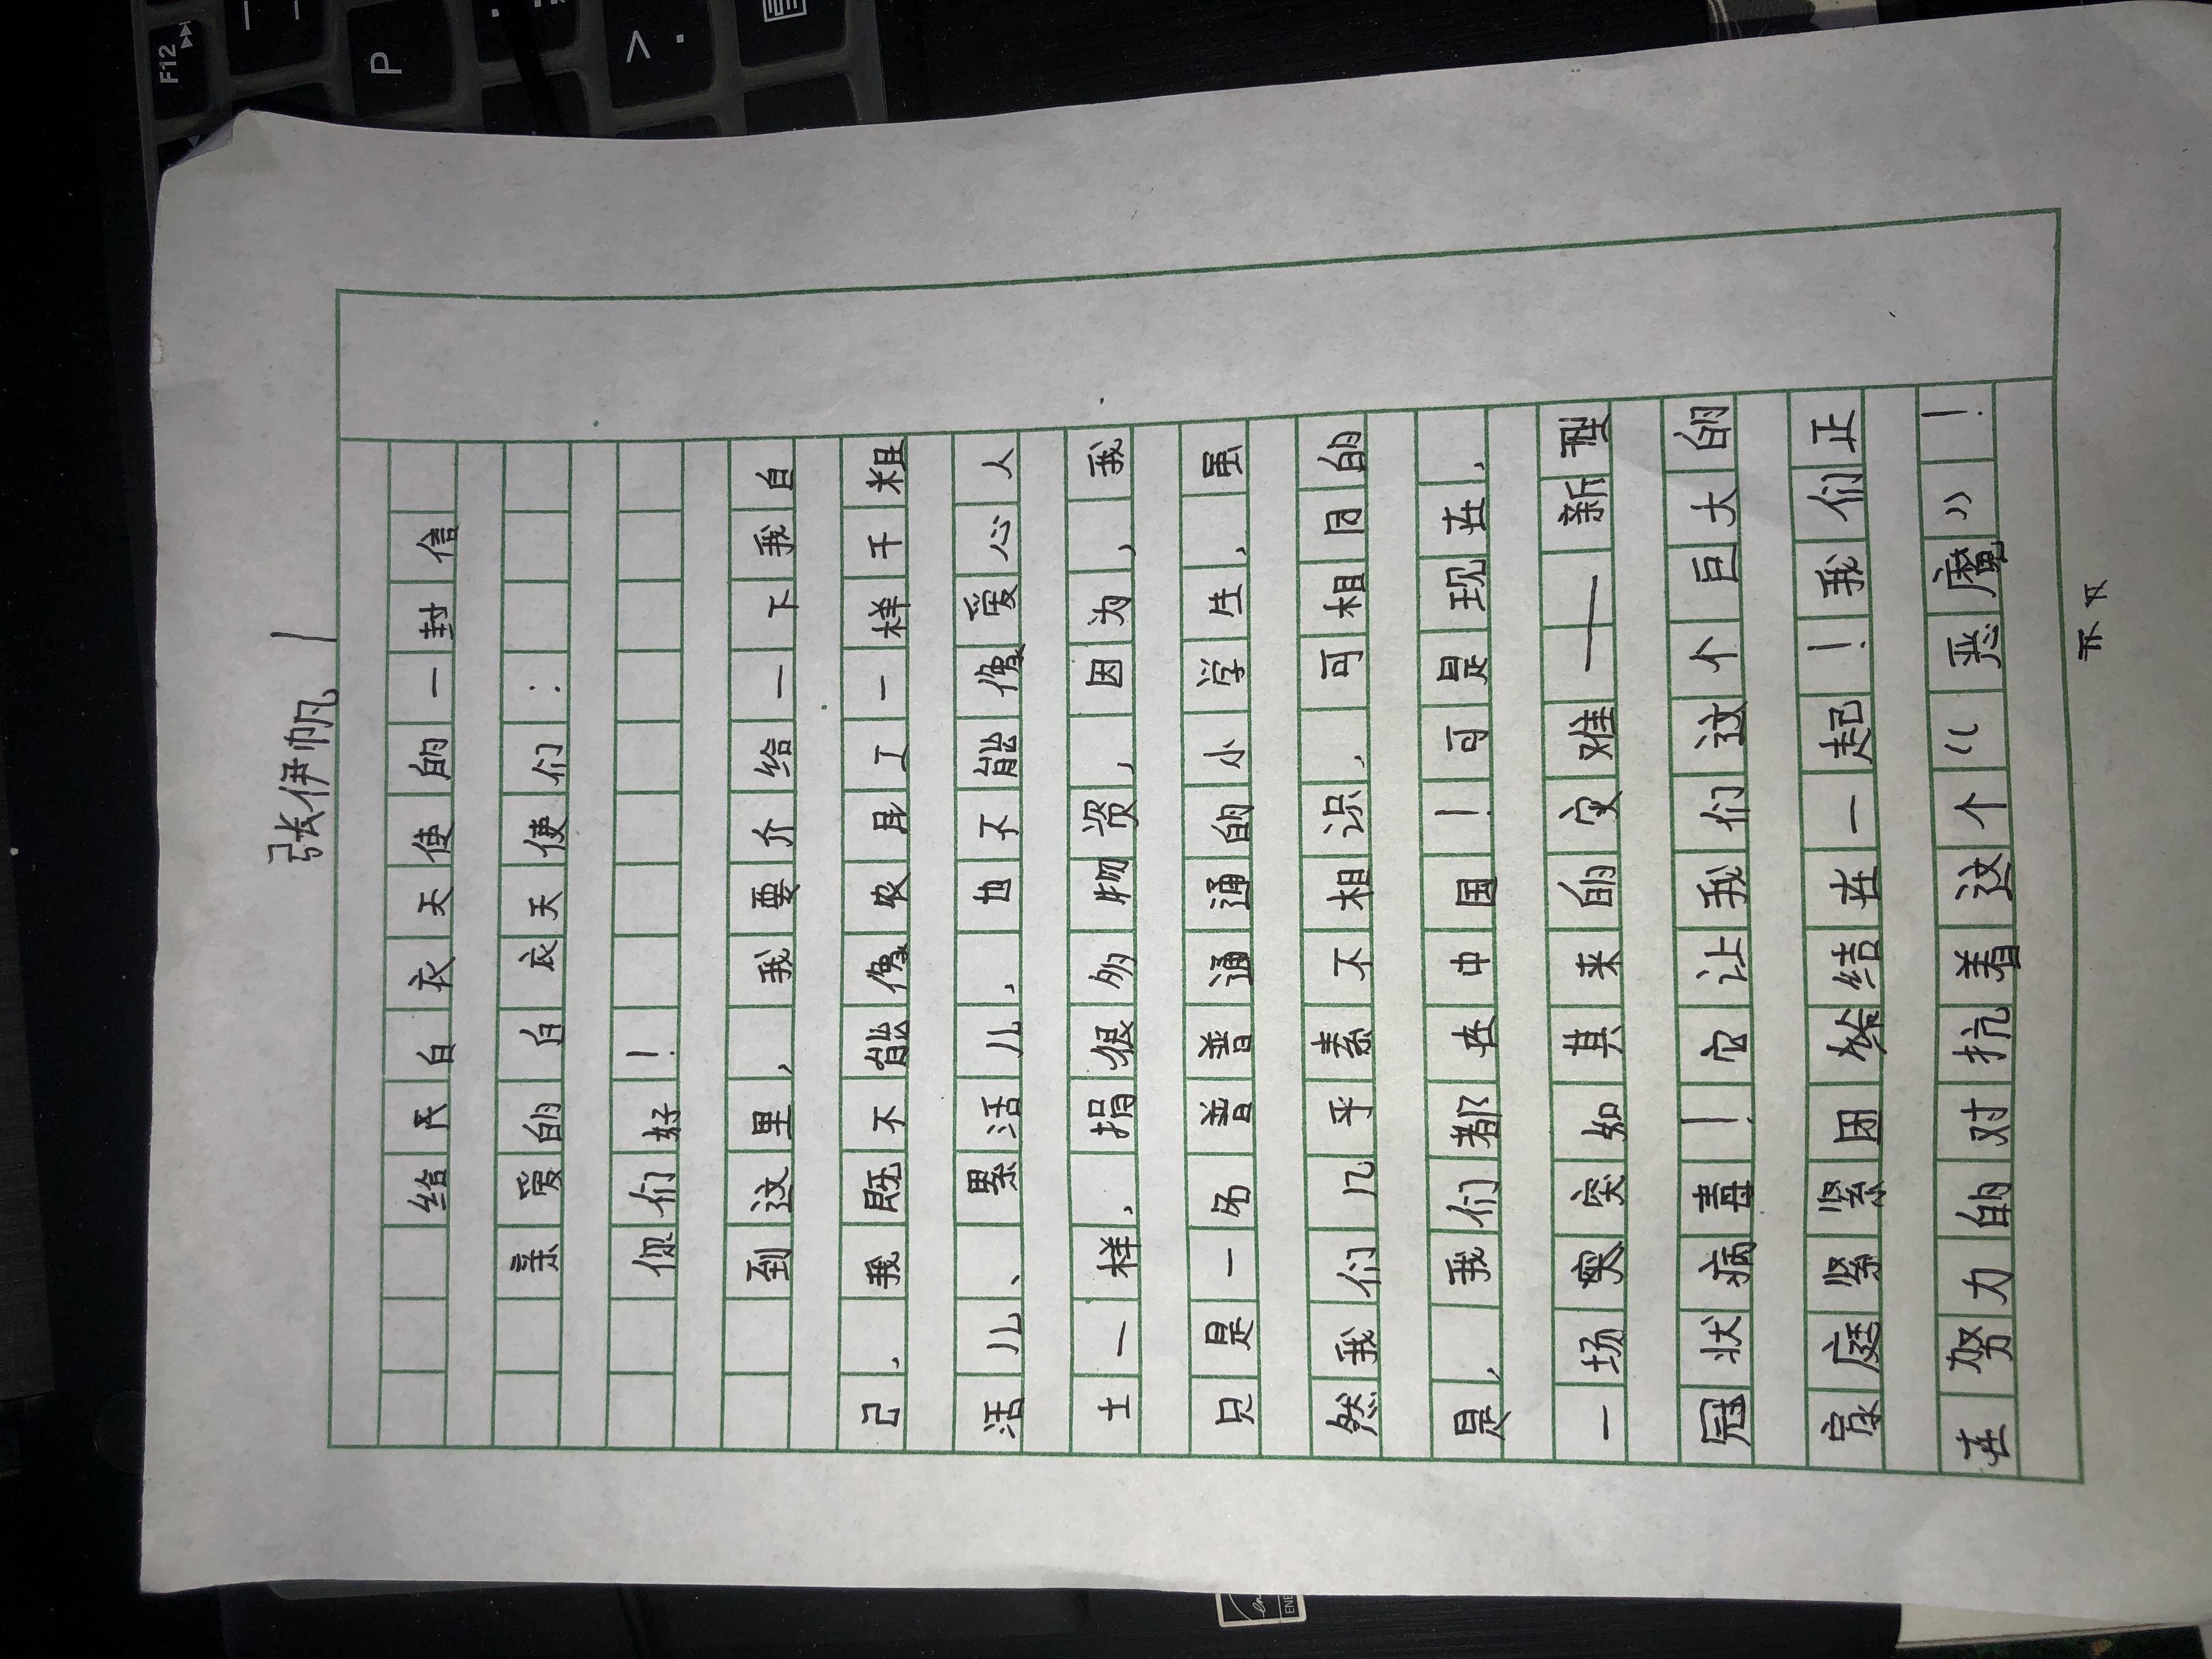 张伊帆
给白衣天使的一封信
亲爱的白衣天使们:
你们好!
到这里,我要介给一下我自
己,我既不能像农民工一样干粗
活儿、累活儿,也不能像爱心人
士一样,捐很多物资,因为,我
只是一名普普通通的小学生,虽
然我们几乎素不相识,可相同的
是,我们都在中国!可是现在,
一场突如其来的灾难——新型
冠状病毒!它让我们这个巨大的
家庭紧紧团结在一起!我们正
在努力的对抗着这个“恶魔”!
F12
P